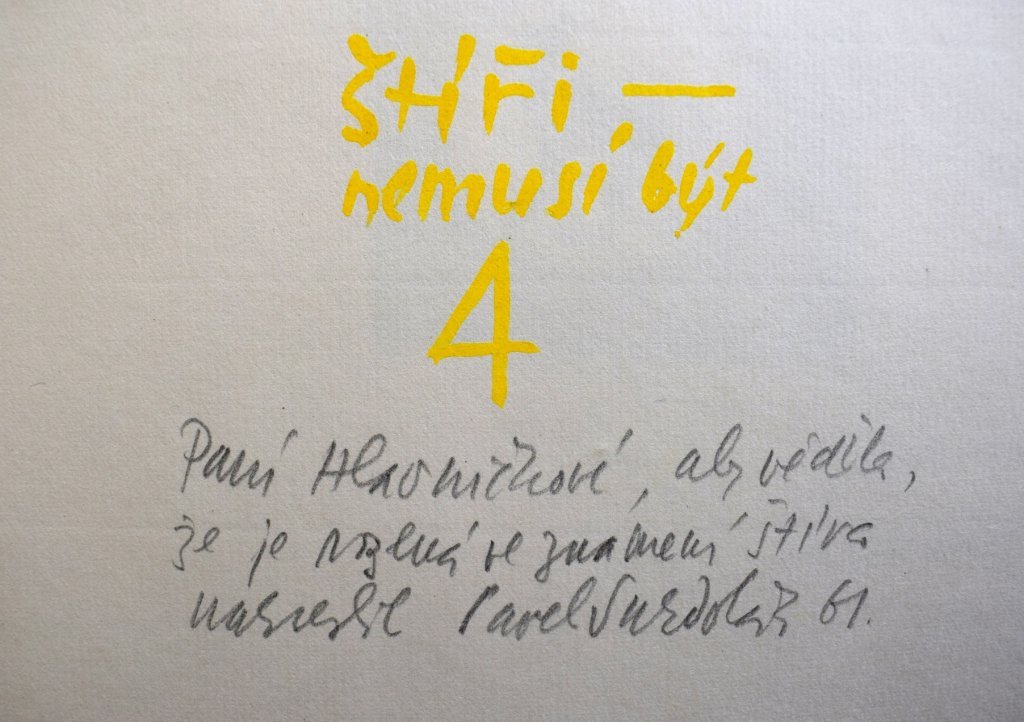 štíři —
nemusí být
4
Paní Hlavničkové, aby věděla,
že je rozená ve znamení štíra
nakreslil Pavel Sukdolák 61.